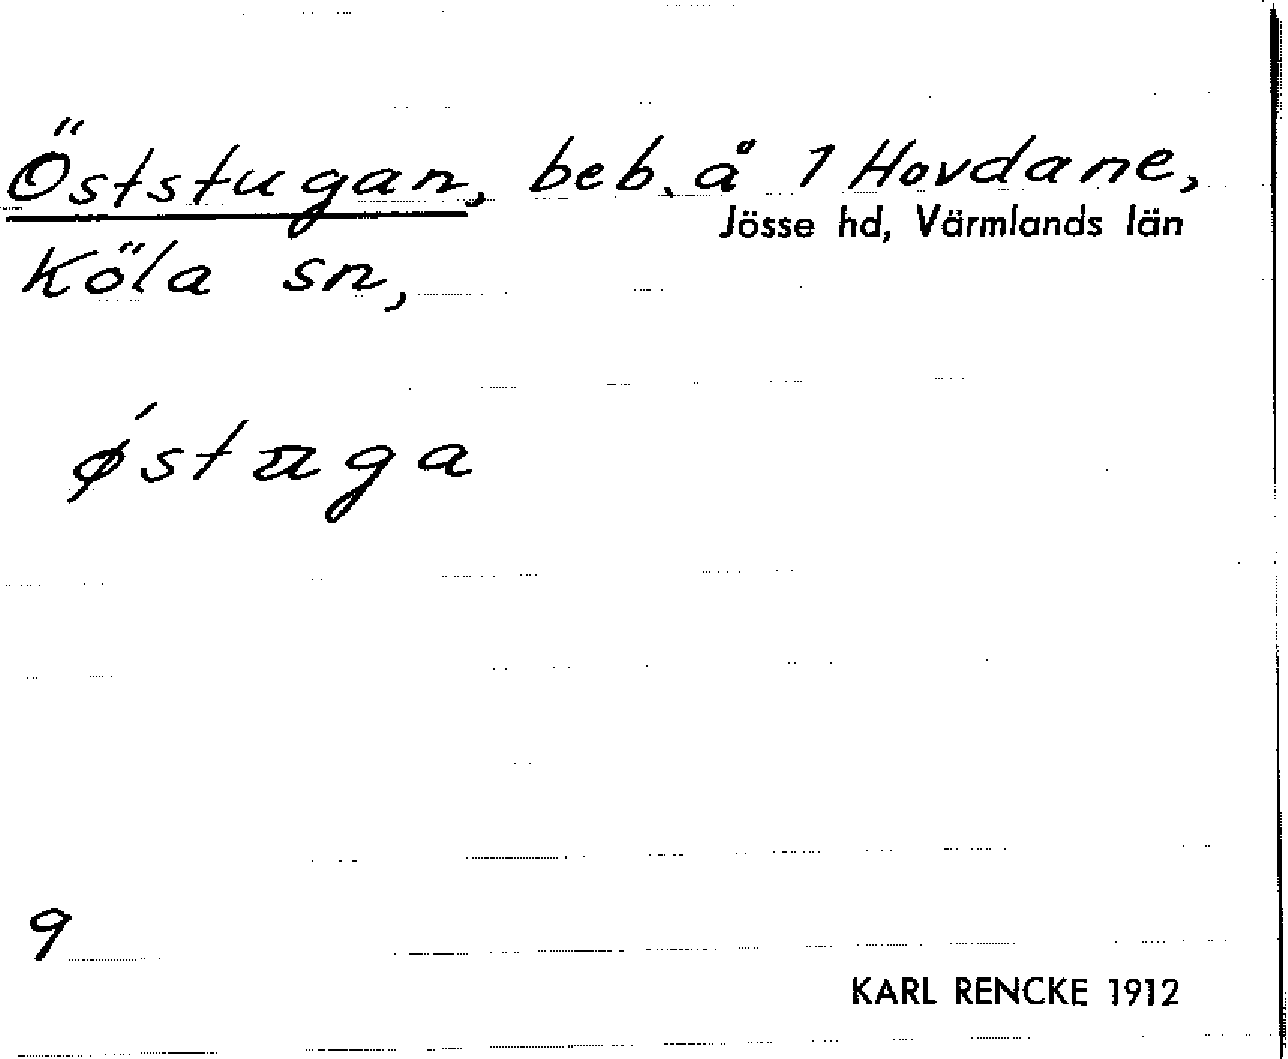 Öststugan, beb. å 1 Hovdane,
Jösse hd, Värmlands län
Köla sn,
ǿstꞟga
9
KARL RENCKE 1912